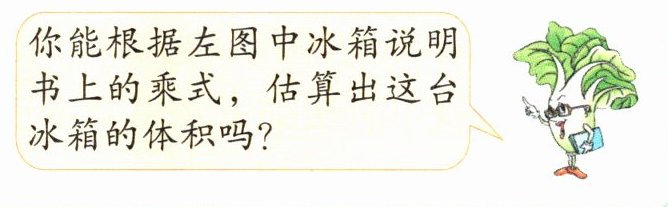 你能根据左图中冰箱说明
书上的乘式，估算出这台
冰箱的体积吗？